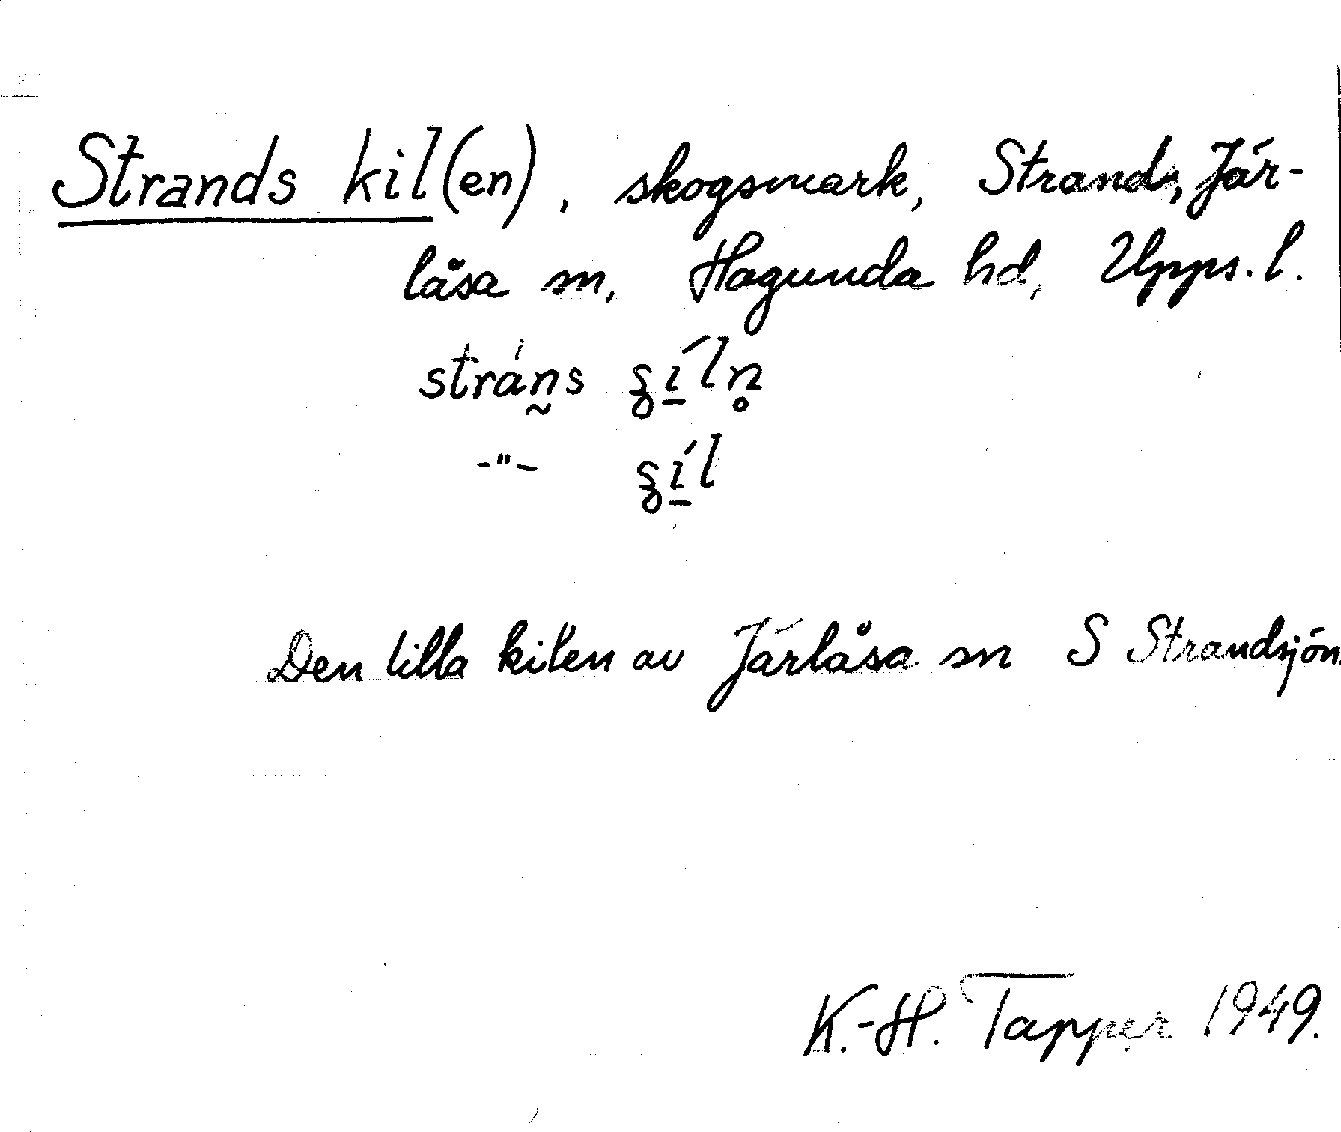 Strands kil(en), skogsmark, Strand, Jär-
låsa sn, Hagunda hd, Upps. l.
stráṋs
-"-
Den lilla kilen av Järlåsa sn S Strandsjön
K.-H. Tapper 1949.